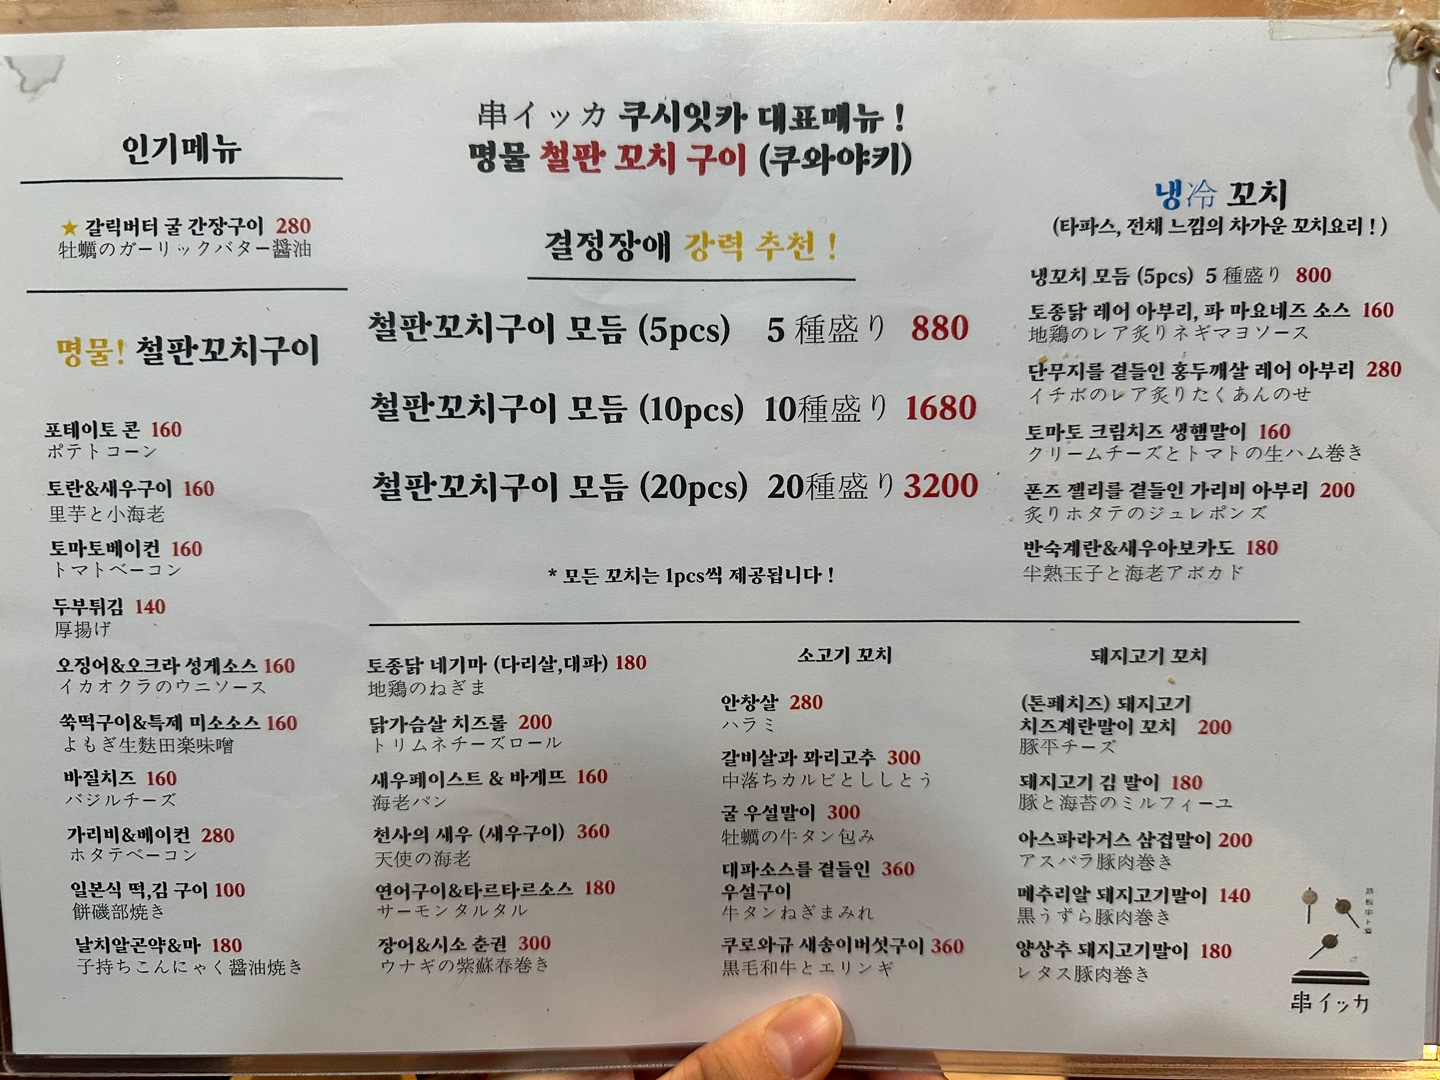 串イッカ 쿠시잇카 대표메뉴 !
명물 철판 꼬치 구이 (쿠와야키)
인기메뉴
★ 갈릭버터 굴 간장구이 280
牡蠣のガーリックバター醤油
명물! 철판꼬치구이
포테이토 콘 160
ポテトコーン
토란&새우구이 160
里芋と小海老
토마토베이컨 160
トマトベーコン
두부튀김 140
厚揚げ
오징어&오크라 성게소스 160
イカオクラのウニソース
쑥떡구이&특제 미소소스 160
よもぎ生麩田楽味噌
바질치즈 160
バジルチーズ
가리비&베이컨 280
ホタテベーコン
일본식 떡,김 구이 100
餅磯部焼き
날치알곤약&마 180
子持ちこんにゃく醤油焼き
결정장애 강력 추천 !
철판꼬치구이 모듬 (5pcs) 5 種盛り 880
철판꼬치구이 모듬 (10pcs) 10種盛り 1680
철판꼬치구이 모듬 (20pcs) 20種盛り 3200
* 모든 꼬치는 1pcs씩 제공됩니다 !
토종닭 네기마 (다리살,대파) 180
地鶏のねぎま
닭가슴살 치즈롤 200
トリムネチーズロール
새우페이스트 & 바게뜨 160
海老パン
천사의 새우 (새우구이) 360
天使の海老
연어구이&타르타르소스 180
サーモンタルタル
장어&시소 춘권 300
ウナギの紫蘇春巻き
소고기 꼬치
안창살 280
ハラミ
갈비살과 꽈리고추 300
中落ちカルビとししとう
굴 우설말이 300
牡蠣の牛タン包み
대파소스를 곁들인 360
우설구이
牛タンねぎまみれ
쿠로와규 새송이버섯구이 360
黒毛和牛とエリンギ
냉冷 꼬치
(타파스, 전채 느낌의 차가운 꼬치요리 ! )
냉꼬치 모듬 (5pcs) 5 種盛り 800
토종닭 레어 아부리, 파 마요네즈 소스 160
地鶏のレア炙りネギマヨソース
단무지를 곁들인 홍두깨살 레어 아부리 280
イチボのレア炙りたくあんのせ
토마토 크림치즈 생햄말이 160
クリームチーズとトマトの生ハム巻き
폰즈 젤리를 곁들인 가리비 아부리 200
炙りホタテのジュレポンズ
반숙계란&새우아보카도 180
半熟玉子と海老アボカド
돼지고기 꼬치
(톤페치즈) 돼지고기
치즈계란말이 꼬치 200
豚平チーズ
돼지고기 김 말이 180
豚と海苔のミルフィーユ
아스파라거스 삼겹말이 200
アスパラ豚肉巻き
메추리알 돼지고기말이 140
黒うずら豚肉巻き
양상추 돼지고기말이 180
レタス豚肉巻き
串イッカ